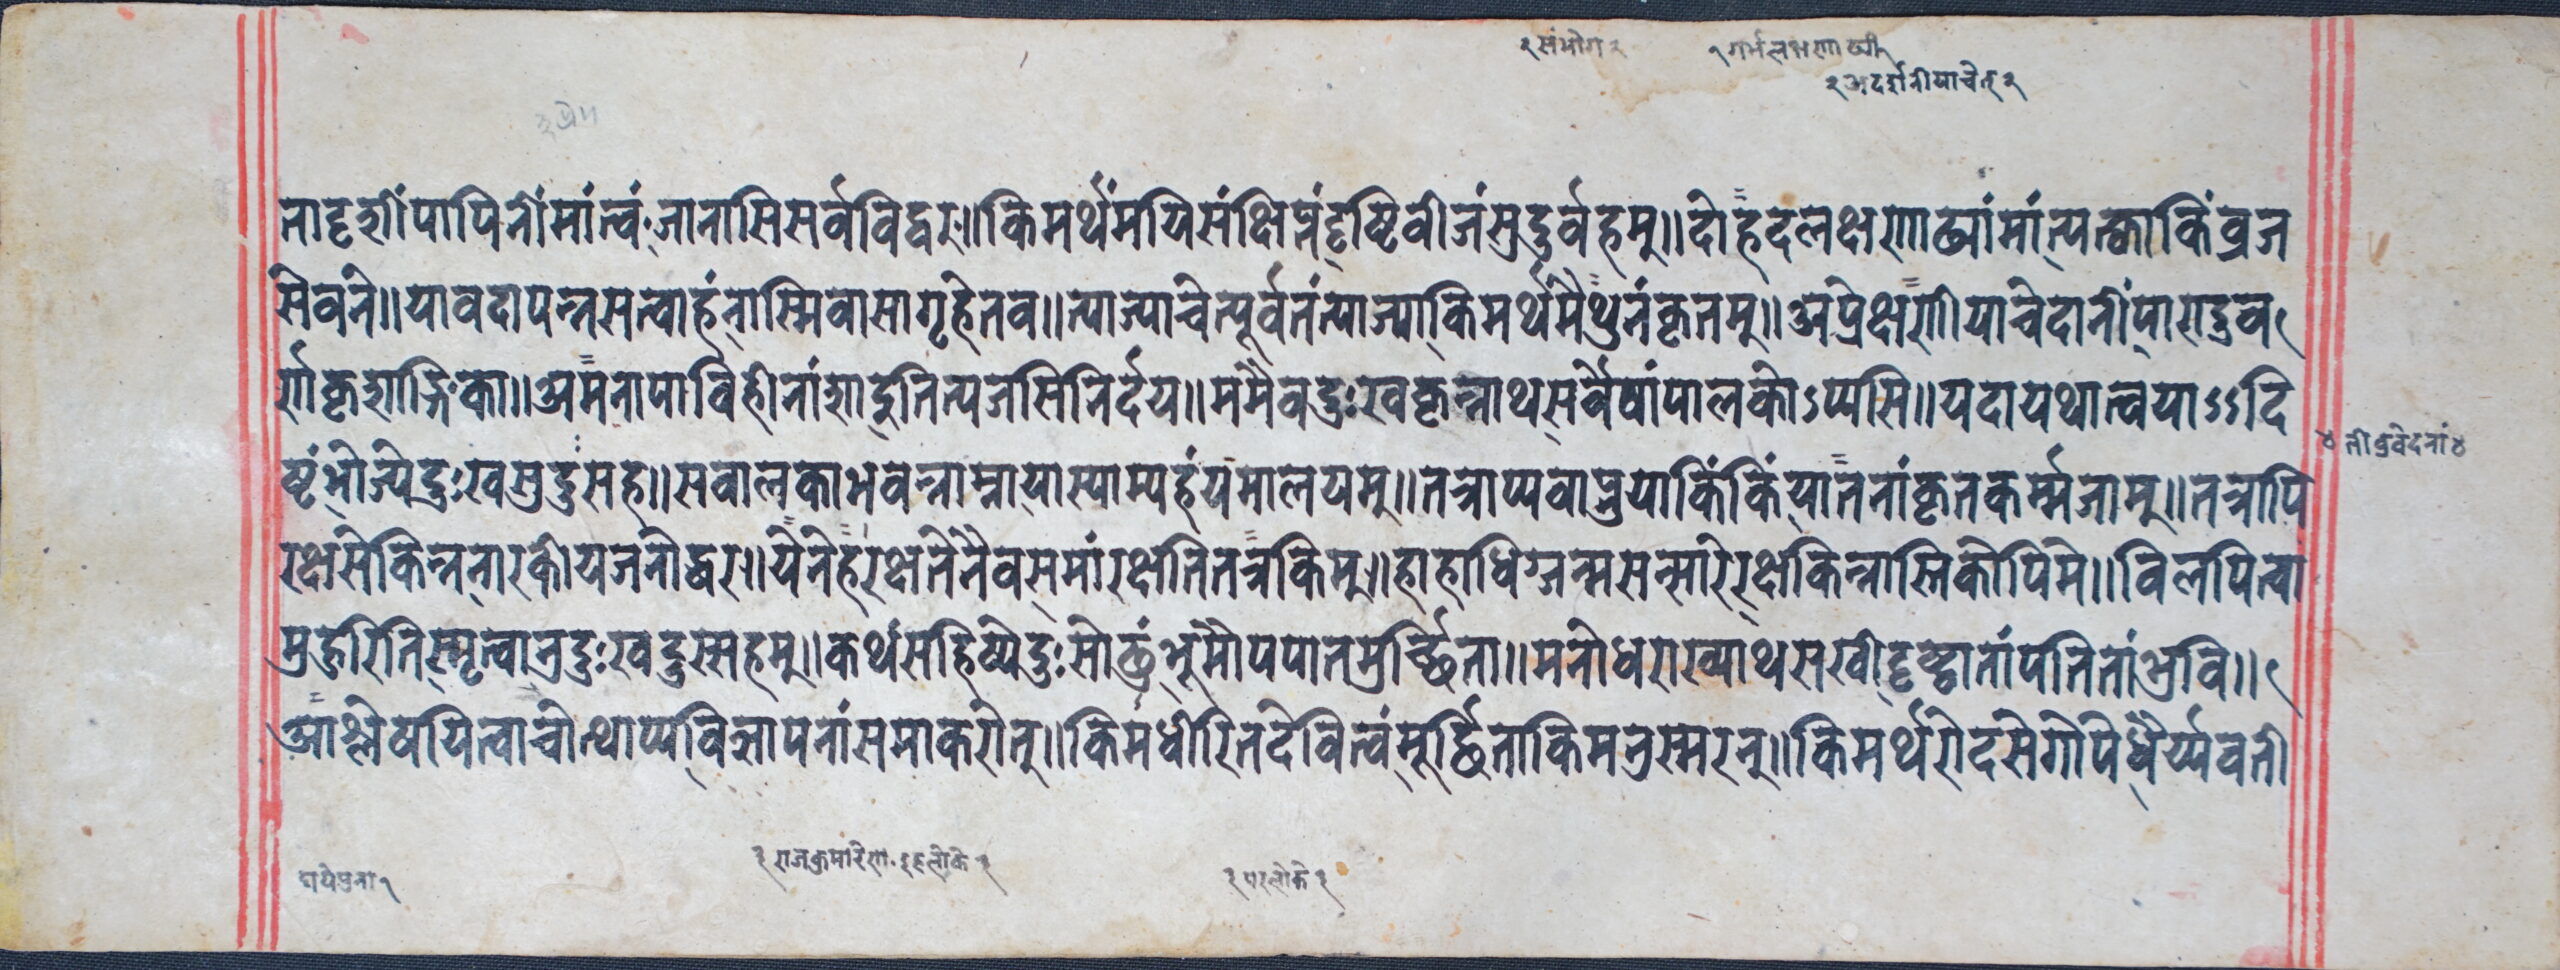 २ संभोग २
१ गर्भलक्षणाढ्यी १
२ अदर्शनीयाचेत् २
३ प्रेम
तादृशींपापिनींमांत्वंजानासिसर्वविद्वर॥किमर्थंमयिसंक्षिप्तंदृष्टिवीजंसुदुर्वहम्॥दोहदलक्षणाढ्यांमांत्यत्क्वाकिंव्रज
सेवने॥यावदापन्नसत्वाहंनास्मिवासागृहेतव॥त्याज्याचेत्पूर्वतंत्याज्याकिमर्थंमैथुनंकृतम्॥अप्रेक्षणीयाचेदानींपाराडुव
र्णाकृशाङ्गिका॥अमनापाविहीनांशादुनित्यजसिनिर्दय॥ममैवदुःखकृन्नाथसर्वेषांपालकोऽप्यसि॥यदायथात्वयाऽऽदि
ष्टंभोज्येदुःखसुदुंसह॥सवालकाभवन्नाम्नायास्याम्यहंयमालयम्॥तत्राप्यवाप्नुयाकिंकिंयातनांकृतकर्म्मजाम्॥तत्रापि
रक्षसेकिन्ननारकीयजनोद्धर॥येनेहरक्षतेनैवसमांरक्षतितत्रकिम्॥हाहाधिग्जन्मसन्सारेरक्षकिन्नास्तिकोपिमे॥विलपित्वा
मुहुरितिस्मृत्वातद्दुःखदुस्सहम्॥कथंसहिष्येदुःसोढुंभूमौपपातमुर्च्छिता॥मनोधराख्याथसखीदृष्ट्वातांपतितांभुवि॥
आश्लेषयित्वाचोत्थाप्यविज्ञापनांसमाकरोत्॥किमधीरितदेवित्वंमूर्छिताकिमनुस्मरन्॥किमर्थंरोदसेगोपेधैर्य्यवती
४ तीव्रवेदनां ४
२ राजकुमारेण इहलोके २
२ परलोके २